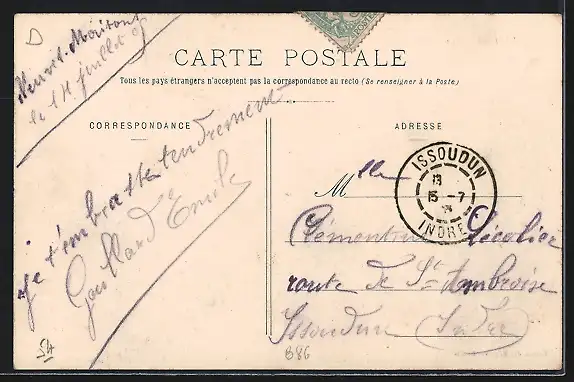 D
le 14 juillet
CARTE POSTALE
Tous les pays étrangers n'acceptent pas la correspondance au recto (Se renseigner à la Poste)
CORRESPONDANCE
ADRESSE
Je t'embrasse tendrement
Gaullard Emile
ISSOUDUN
13
15 -7
INDRE
Mlle
Clémentine Lécolier
route de St Ambroise
Issoudun Indre
54
B86